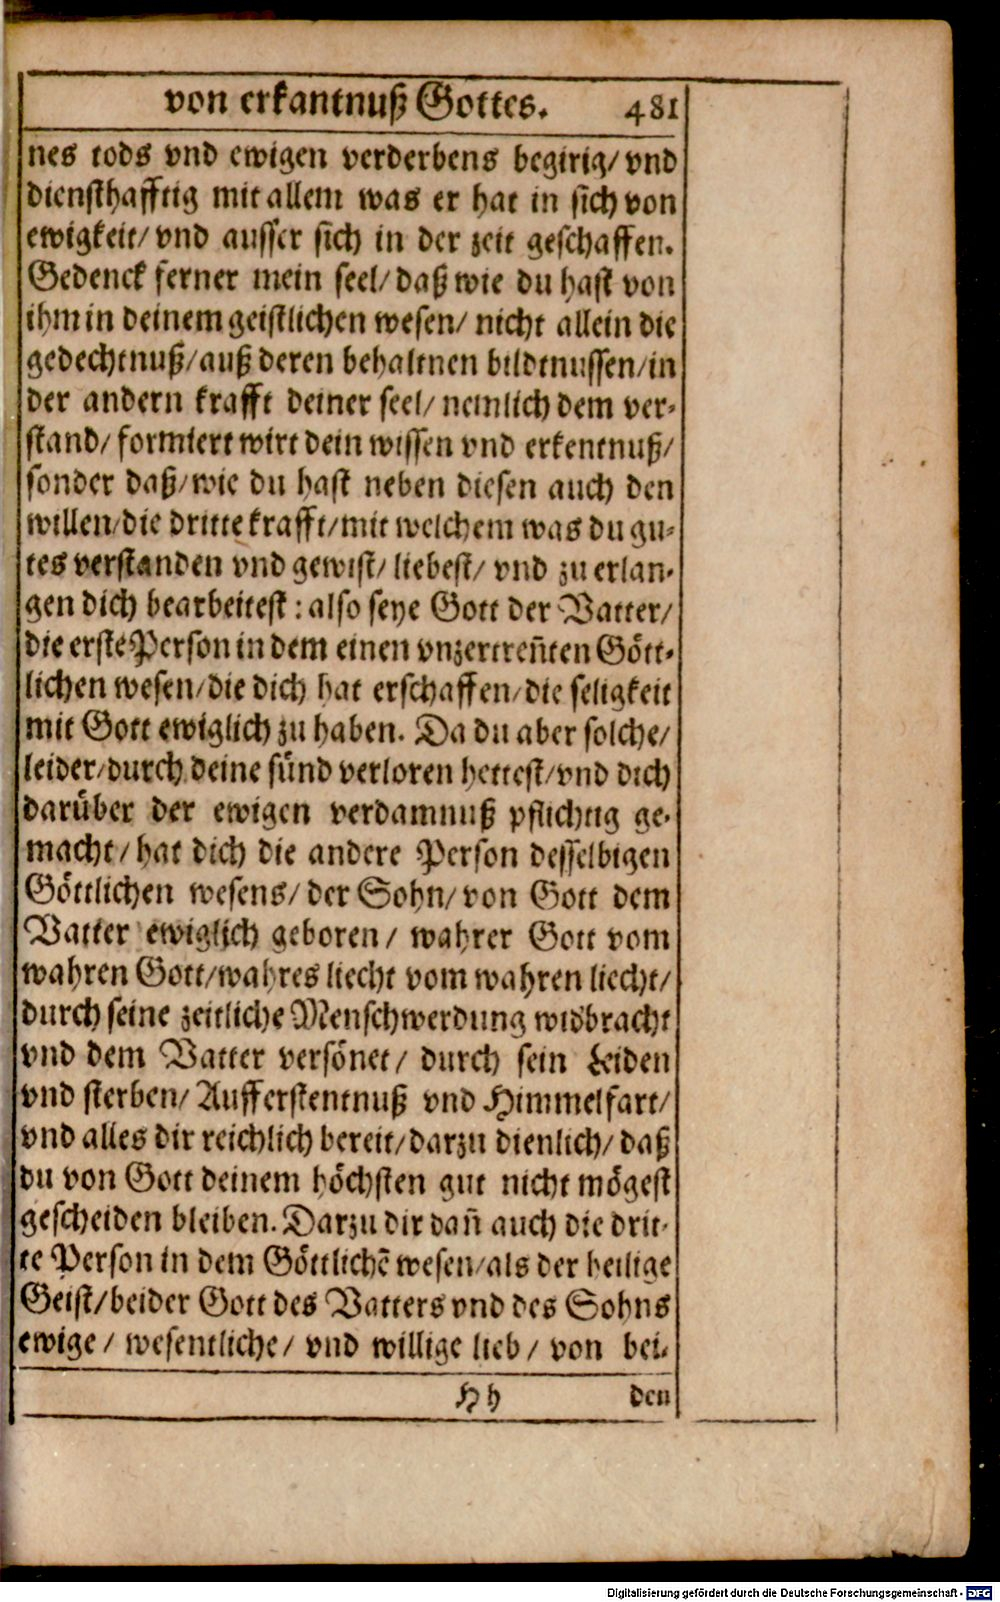 von erkantnuß Gottes. 481
nes tods vnd ewigen verderbens begirig/ vnd
diensthafftig mit allem was er hat in sich von
ewigkeit/ vnd ausser sich in der zeit geschaffen.
Gedenck ferner mein seel/ daß wie du hast von
ihm in deinem geistlichen wesen/ nicht allein die
gedechtnuß/ auß deren behaltnen bildtnussen/ in
der andern krafft deiner seel/ nemlich dem ver-
stand/ formiert wirt dein wissen vnd erkentnuß/
sonder daß/ wie du hast neben diesen auch den
willen/ die dritte krafft/ mit welchem was du gu-
tes verstanden vnd gewist/ liebest/ vnd zu erlan-
gen dich bearbeitest: also seye Gott der Vatter/
die erste Person in dem einen vnzertreñten Gött-
lichen wesen/ die dich hat erschaffen/ die seligkeit
mit Gott ewiglich zu haben. Da du aber solche/
leider/ durch deine sünd verloren hettest/ vnd dich
darüber der ewigen verdamnuß pflichtig ge-
macht/ hat dich die andere Person desselbigen
Göttlichen wesens/ der Sohn/ von Gott dem
Vatter ewiglich geboren/ wahrer Gott vom
wahren Gott/ wahres liecht vom wahren liecht/
durch seine zeitliche Menschwerdung widbracht
vnd dem Vatter versönet/ durch sein Leiden
vnd sterben/ Aufferstentnuß vnd Himmelfart/
vnd alles dir reichlich bereit/ darzu dienlich/ daß
du von Gott deinem höchsten gut nicht mögest
gescheiden bleiben. Darzu dir dañ auch die drit-
te Person in dem Göttlichẽ wesen/ als der heilige
Geist/ beider Gott des Vatters vnd des Sohns
ewige/ wesentliche/ vnd willige lieb/ von bei-
H h den
Digitalisierung gefördert durch die Deutsche Forschungsgemeinschaft - DFG